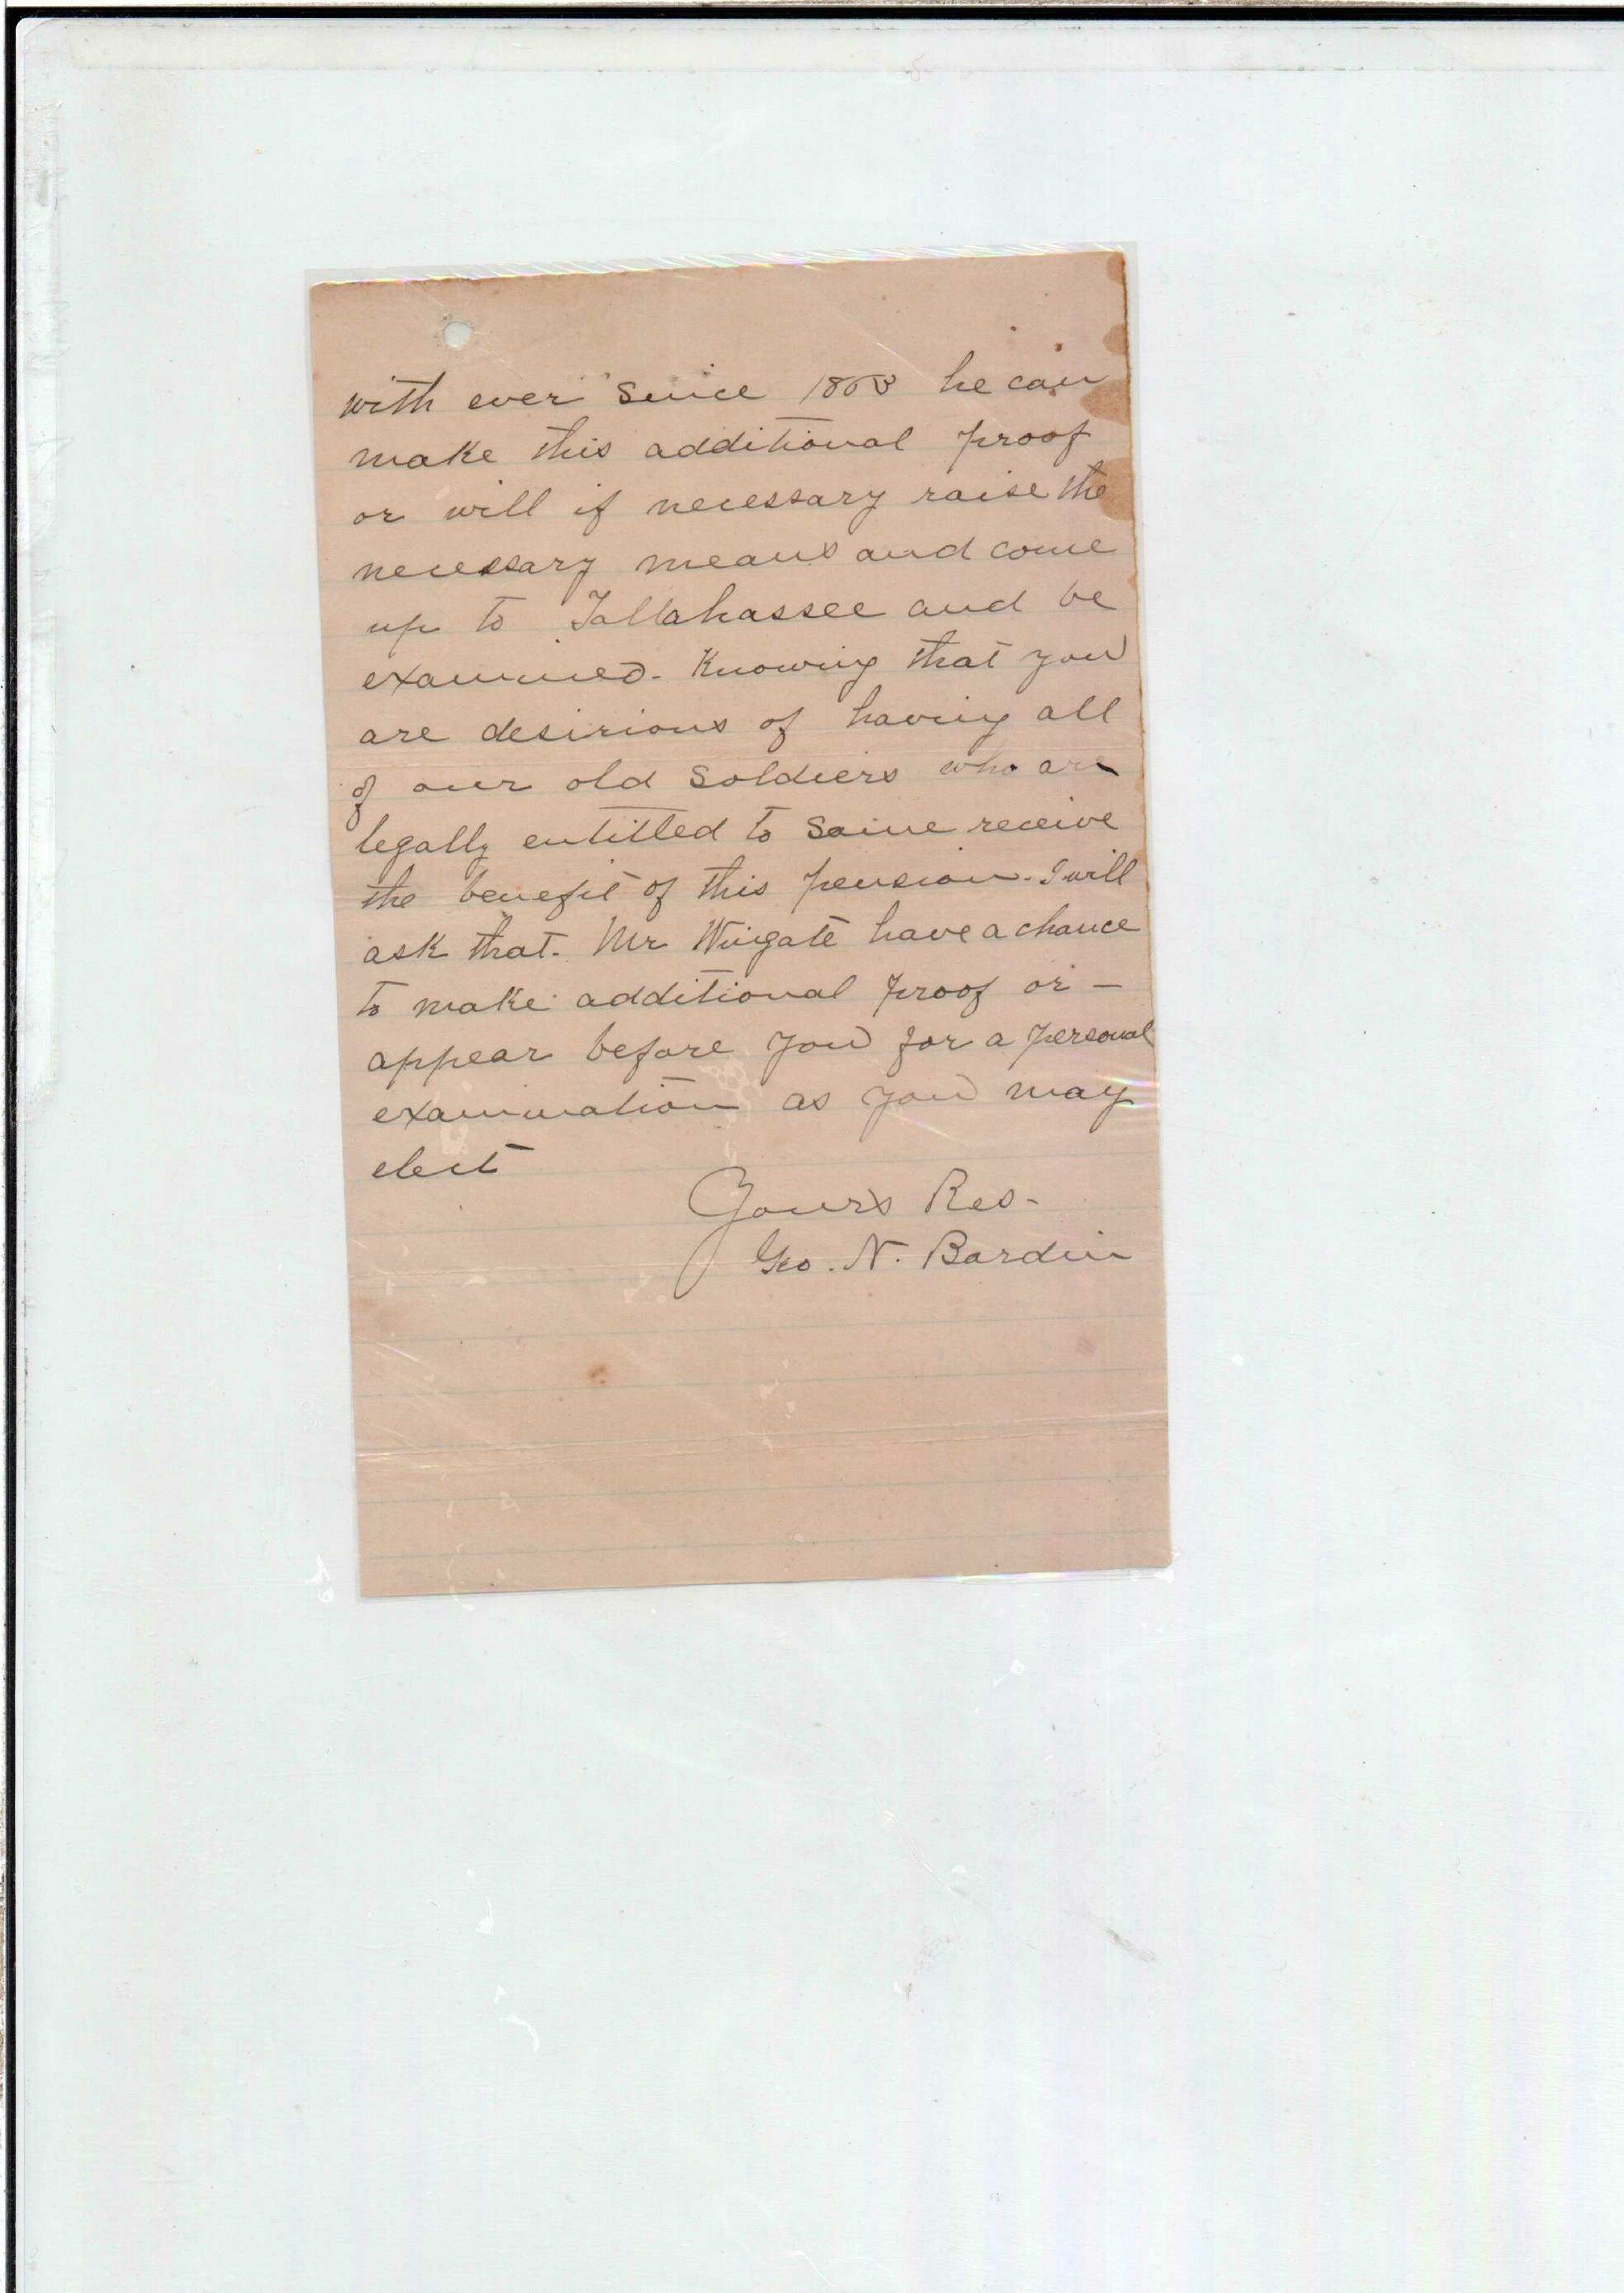 with ever since 1863 he can
make this additional proof
or will if necessary raise the
necessary means and come
up to Tallahassee and be
examined. Knowing that you
are desirious of having all
of our old soldiers who are
legally entitled to same receive
the benefit of this pension. I will
ask that. Mr Wingate have a chance
to make additional proof or -
appear before you for a personal
examination as you may
elect
Yours Res-
Geo. N. Bardin